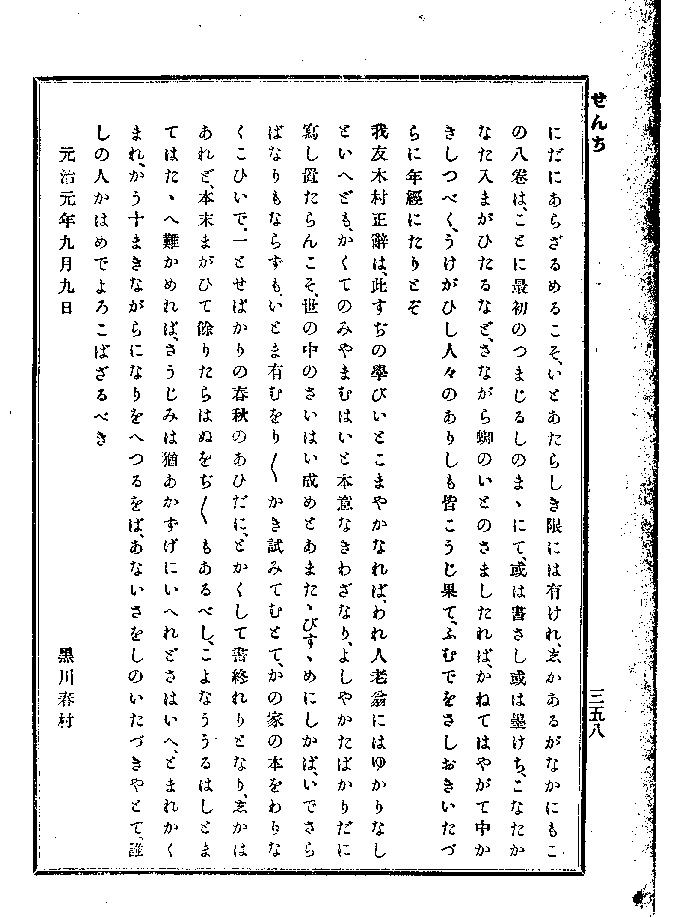 せんち
三五八
にだにあらざるめるこそ、いとあたらしき限には有けれ、志かあるがなかにもこ
の八卷は、ことに最初のつまじるしのまゝにて、或は書さし或は墨けち、こなたか
なた入まがひたるなど、さながら蜘のいとのさましたれば、かねてはやがて中か
きしつべく、うけがひし人々のありしも皆こうじ果て、ふむでをさしおきいたづ
らに年經にたりとぞ
我友木村正辭は、此すぢの學びいとこまやかなれば、われ人老翁にはゆかりなし
といへども、かくてのみやまむはいと本意なきわざなり、よしやかたばかりだに
寫し置たらんこそ、世の中のさいはい成めとあまたゝびすゝめにしかば、いでさら
ばなりもならずも、いとま有むをり〱かき試みてむとて、かの家の本をわりな
くこひいで、一とせばかりの春秋のあひだに、とかくして書終れりとなり、志かは
あれど、本末まがひて餘りたらはぬをぢ〱もあるべし、こよなううるはしとま
てはたゝへ難かめれば、さうじみは猶あかずげにいへれどさはいへ、とまれかく
まれ、かう十まきながらになりをへつるをば、あないさをしのいたづきやとて、誰
しの人かはめでよろこばざるべき
元治元年九月九日
黑川春村